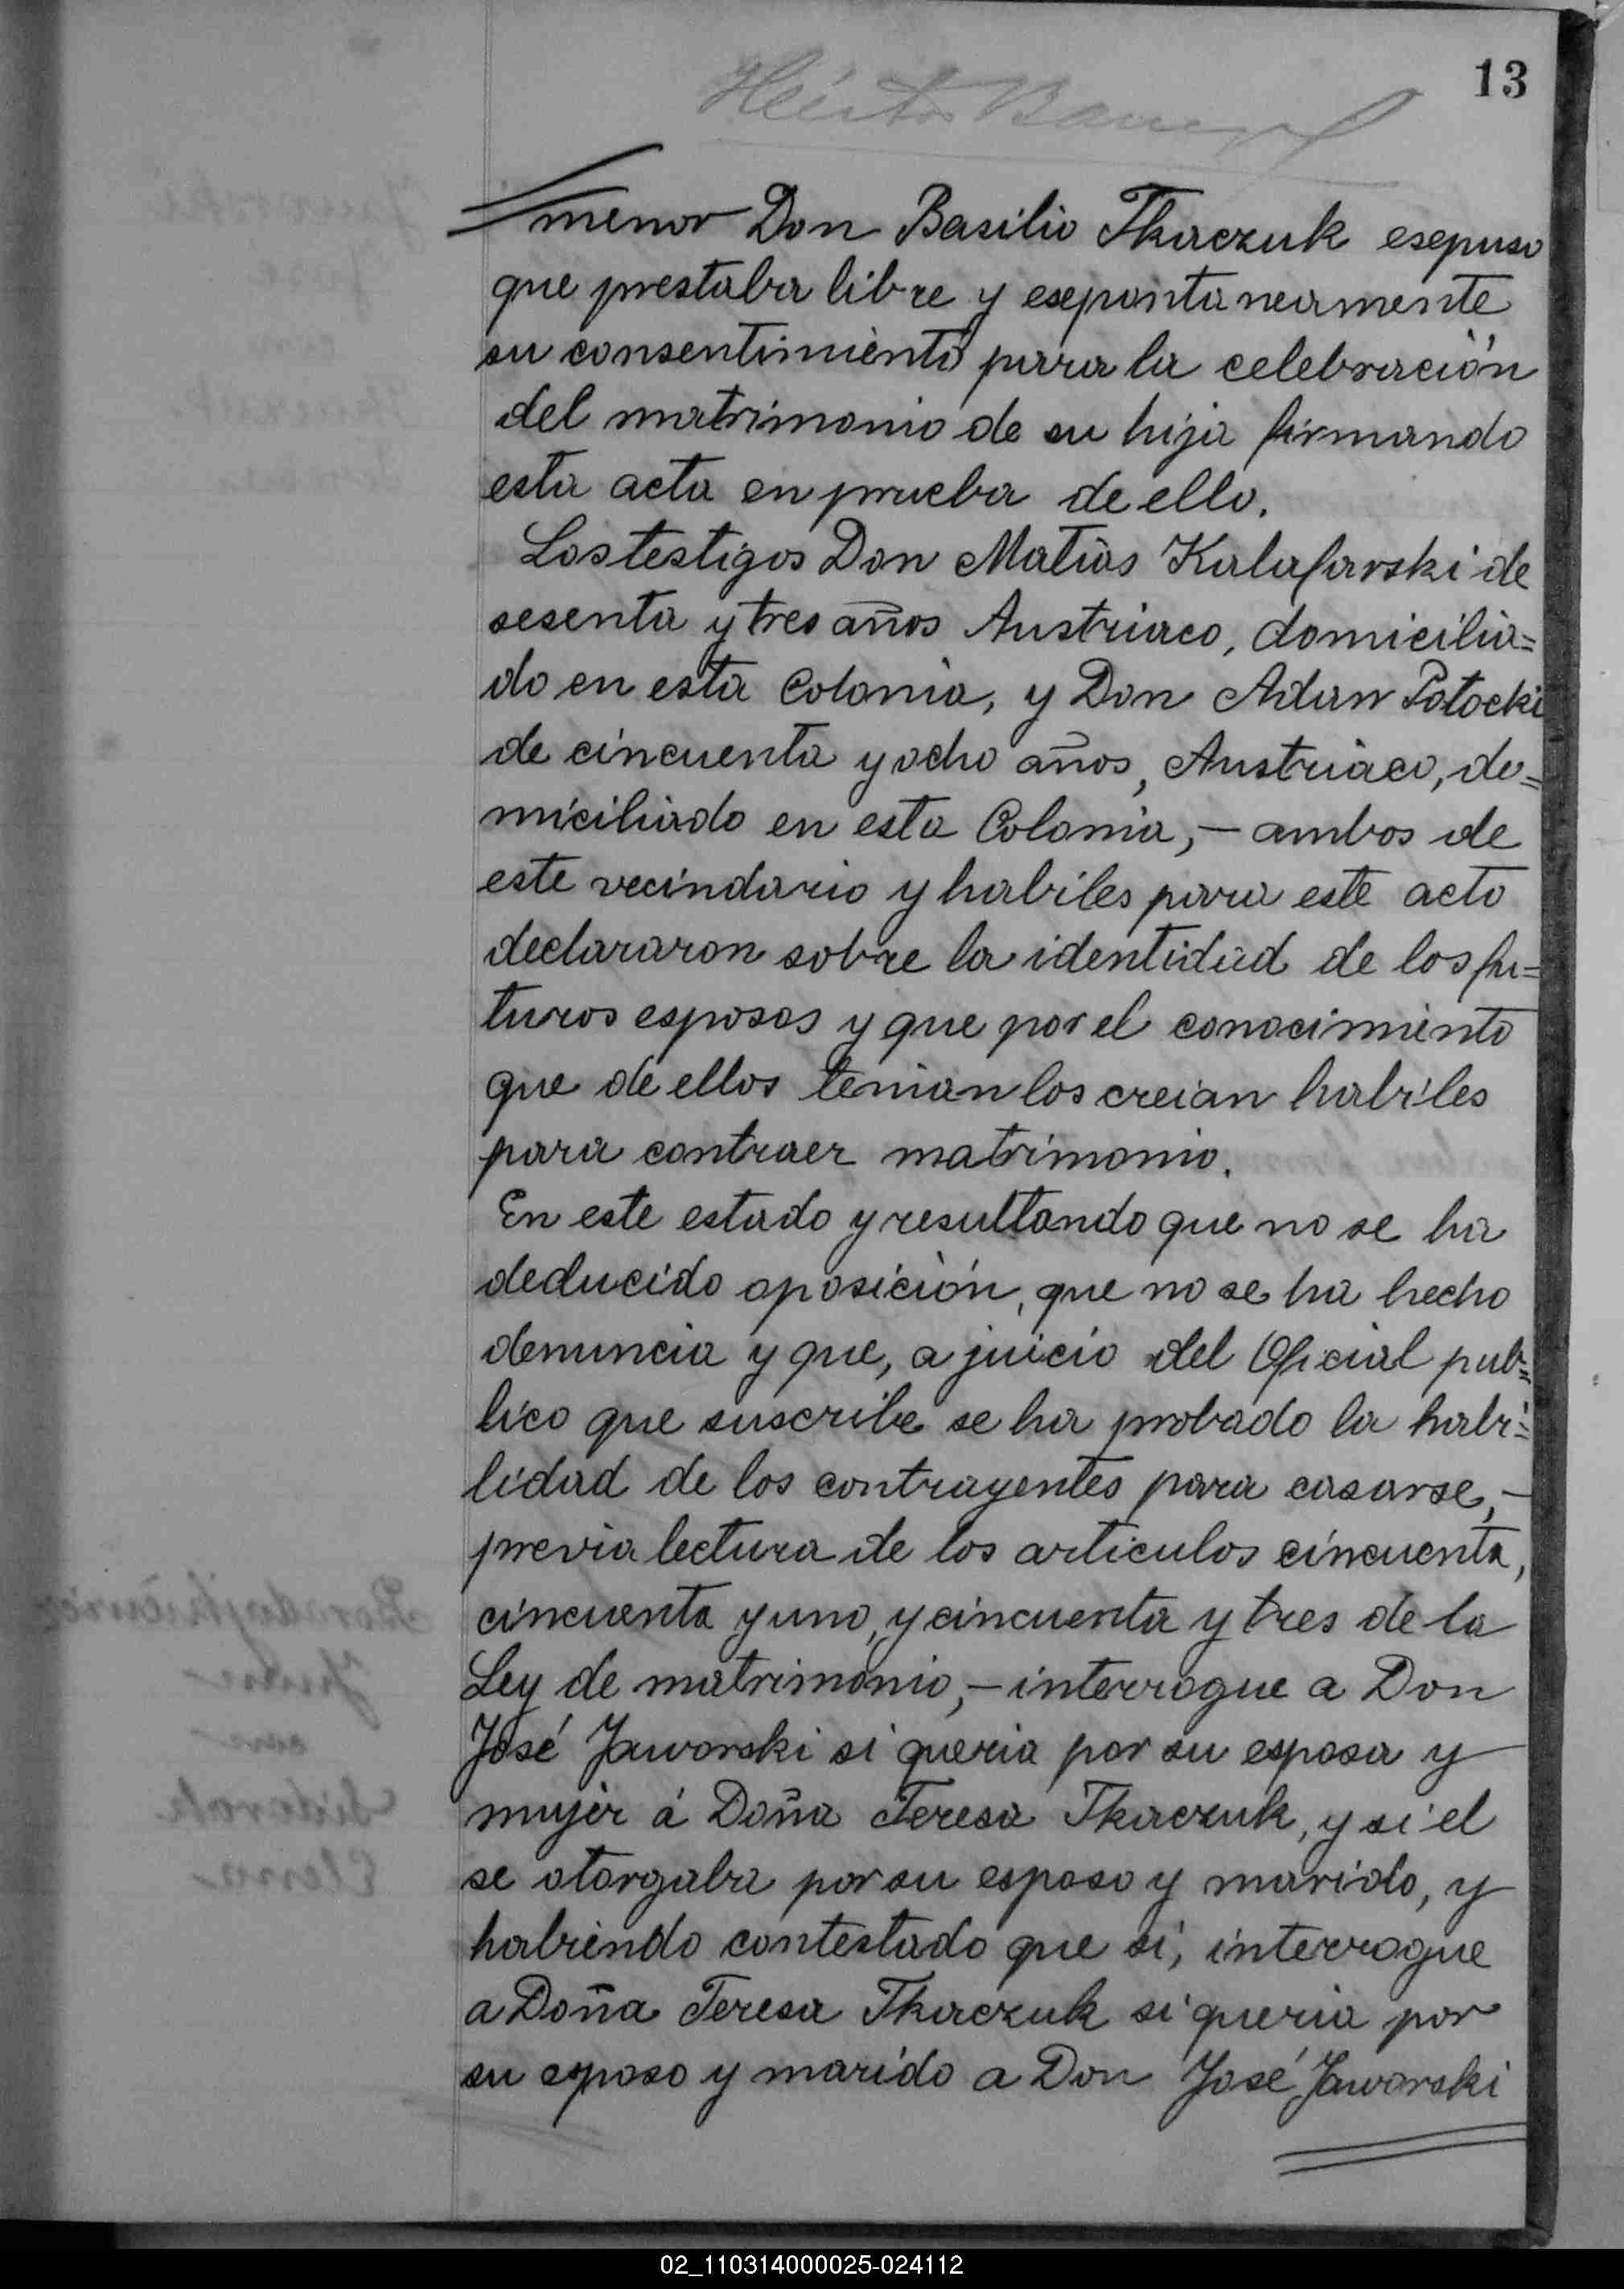 13
Héctor
menor Don Basilio Tkaczuk esepuso
que prestaba libre y esepontaneamente
su consentimiento para la celebración
del matrimonio de su hija firmando
esta acta en prueba de ello.
Los testigos Don Matias Kalafarski de
sesenta y tres años Austriaco, domicilia=
do en esta Colonia, y Don Adan Potocki
de cincuenta y ocho años, Austriaco, do=
miciliado en esta Colonia, – ambos de
este vecindario y habiles para este acto
declararon sobre la identidad de los fu=
turos esposos y que por el conocimiento
que de ellos tenian los creian habiles
para contraer matrimonio.
En este estado y resultando que no se ha
deducido oposición, que no se ha hecho
denuncia y que, a juicio del Oficial pub=
lico que suscribe se ha probado la habi=
lidad de los contrayentes para casarse, –
previa lectura de los articulos cincuenta,
cincuenta y uno, y cincuenta y tres de la
Ley de matrimonio, – interrogue a Don
José Jaworski si queria por su esposa y
mujer á Doña Teresa Tkaczuk, y si el
se otorgaba por su esposo y marido, y
habiendo contestado que si, interrogue
a Doña Teresa Tkaczuk si queria por
su esposo y marido a Don José Jaworski
02_110314000025-024112